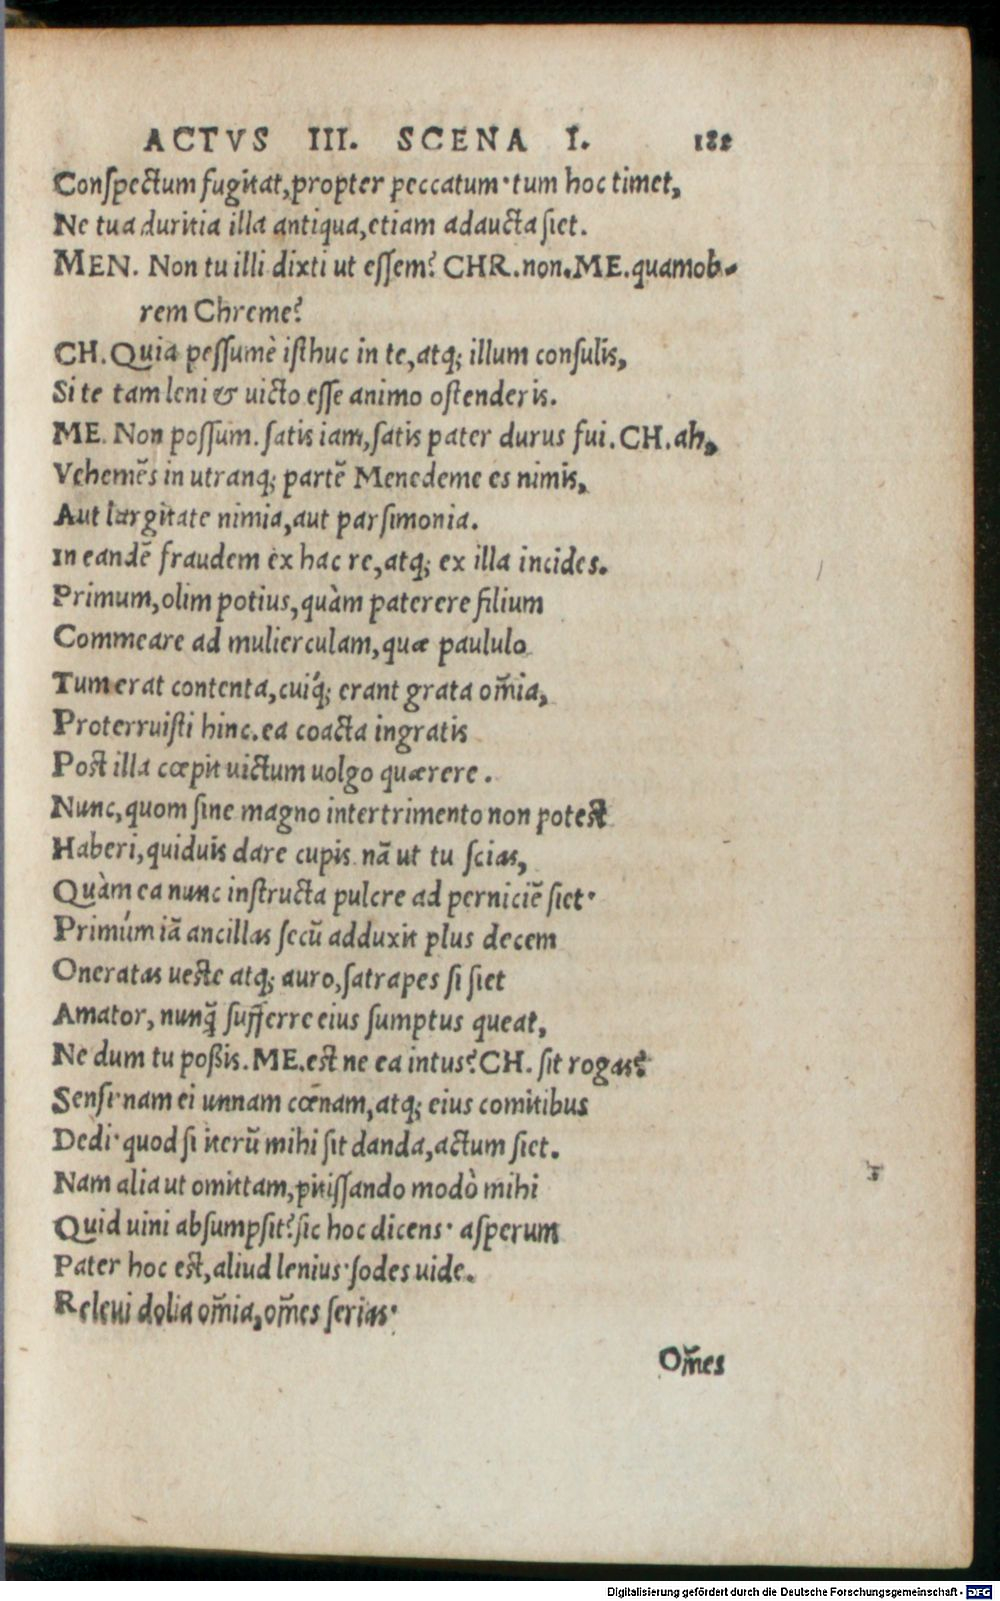 ACTVS III. SCENA I. 181
Conſpectum fugitat, propter peccatum· tum hoc timet,
Ne tua duritia illa antiqua, etiam adaucta ſiet.
MEN. Non tu illi dixti ut eſſem? CHR. non. ME. quamob-
rem Chreme?
CH. Quia peſſumè iſthuc in te, atq; illum conſulis,
Si te tam leni & uicto eſſe animo oſtenderis.
ME. Non poſſum. ſatis iam, ſatis pater durus fui. CH. ah,
Vehemẽs in utranq; partẽ Menedeme es nimis,
Aut largitate nimia, aut parſimonia.
In eandẽ fraudem ex hac re, atq; ex illa incides.
Primum, olim potius, quàm paterere filium
Commeare ad mulierculam, quæ paululo
Tum erat contenta, cuiq́; erant grata om̃ia,
Proterruiſti hinc. ea coacta ingratis
Post illa cœpit uictum uolgo quærere.
Nunc, quom ſine magno intertrimento non potest
Haberi, quiduis dare cupis. nã ut tu ſcias,
Quàm ea nunc inſtructa pulcre ad perniciẽ ſiet·
Primùm iã ancillas ſecũ adduxit plus decem
Oneratas ueste atq; auro, ſatrapes ſi ſiet
Amator, nunq̃ ſufferre eius ſumptus queat,
Ne dum tu poßis. ME. est ne ea intus? CH. ſit rogas?
Senſi· nam ei unnam cœnam, atq; eius comitibus
Dedi· quod ſi iterũ mihi ſit danda, actum ſiet.
Nam alia ut omittam, pitiſſando modò mihi
Quid uini abſumpſit? ſic hoc dicens· aſperum
Pater hoc est, aliud lenius· ſodes uide.
Releui dolia om̃ia, om̃es ſerias·
Om̃es
Digitalisierung gefördert durch die Deutsche Forschungsgemeinschaft - DFG